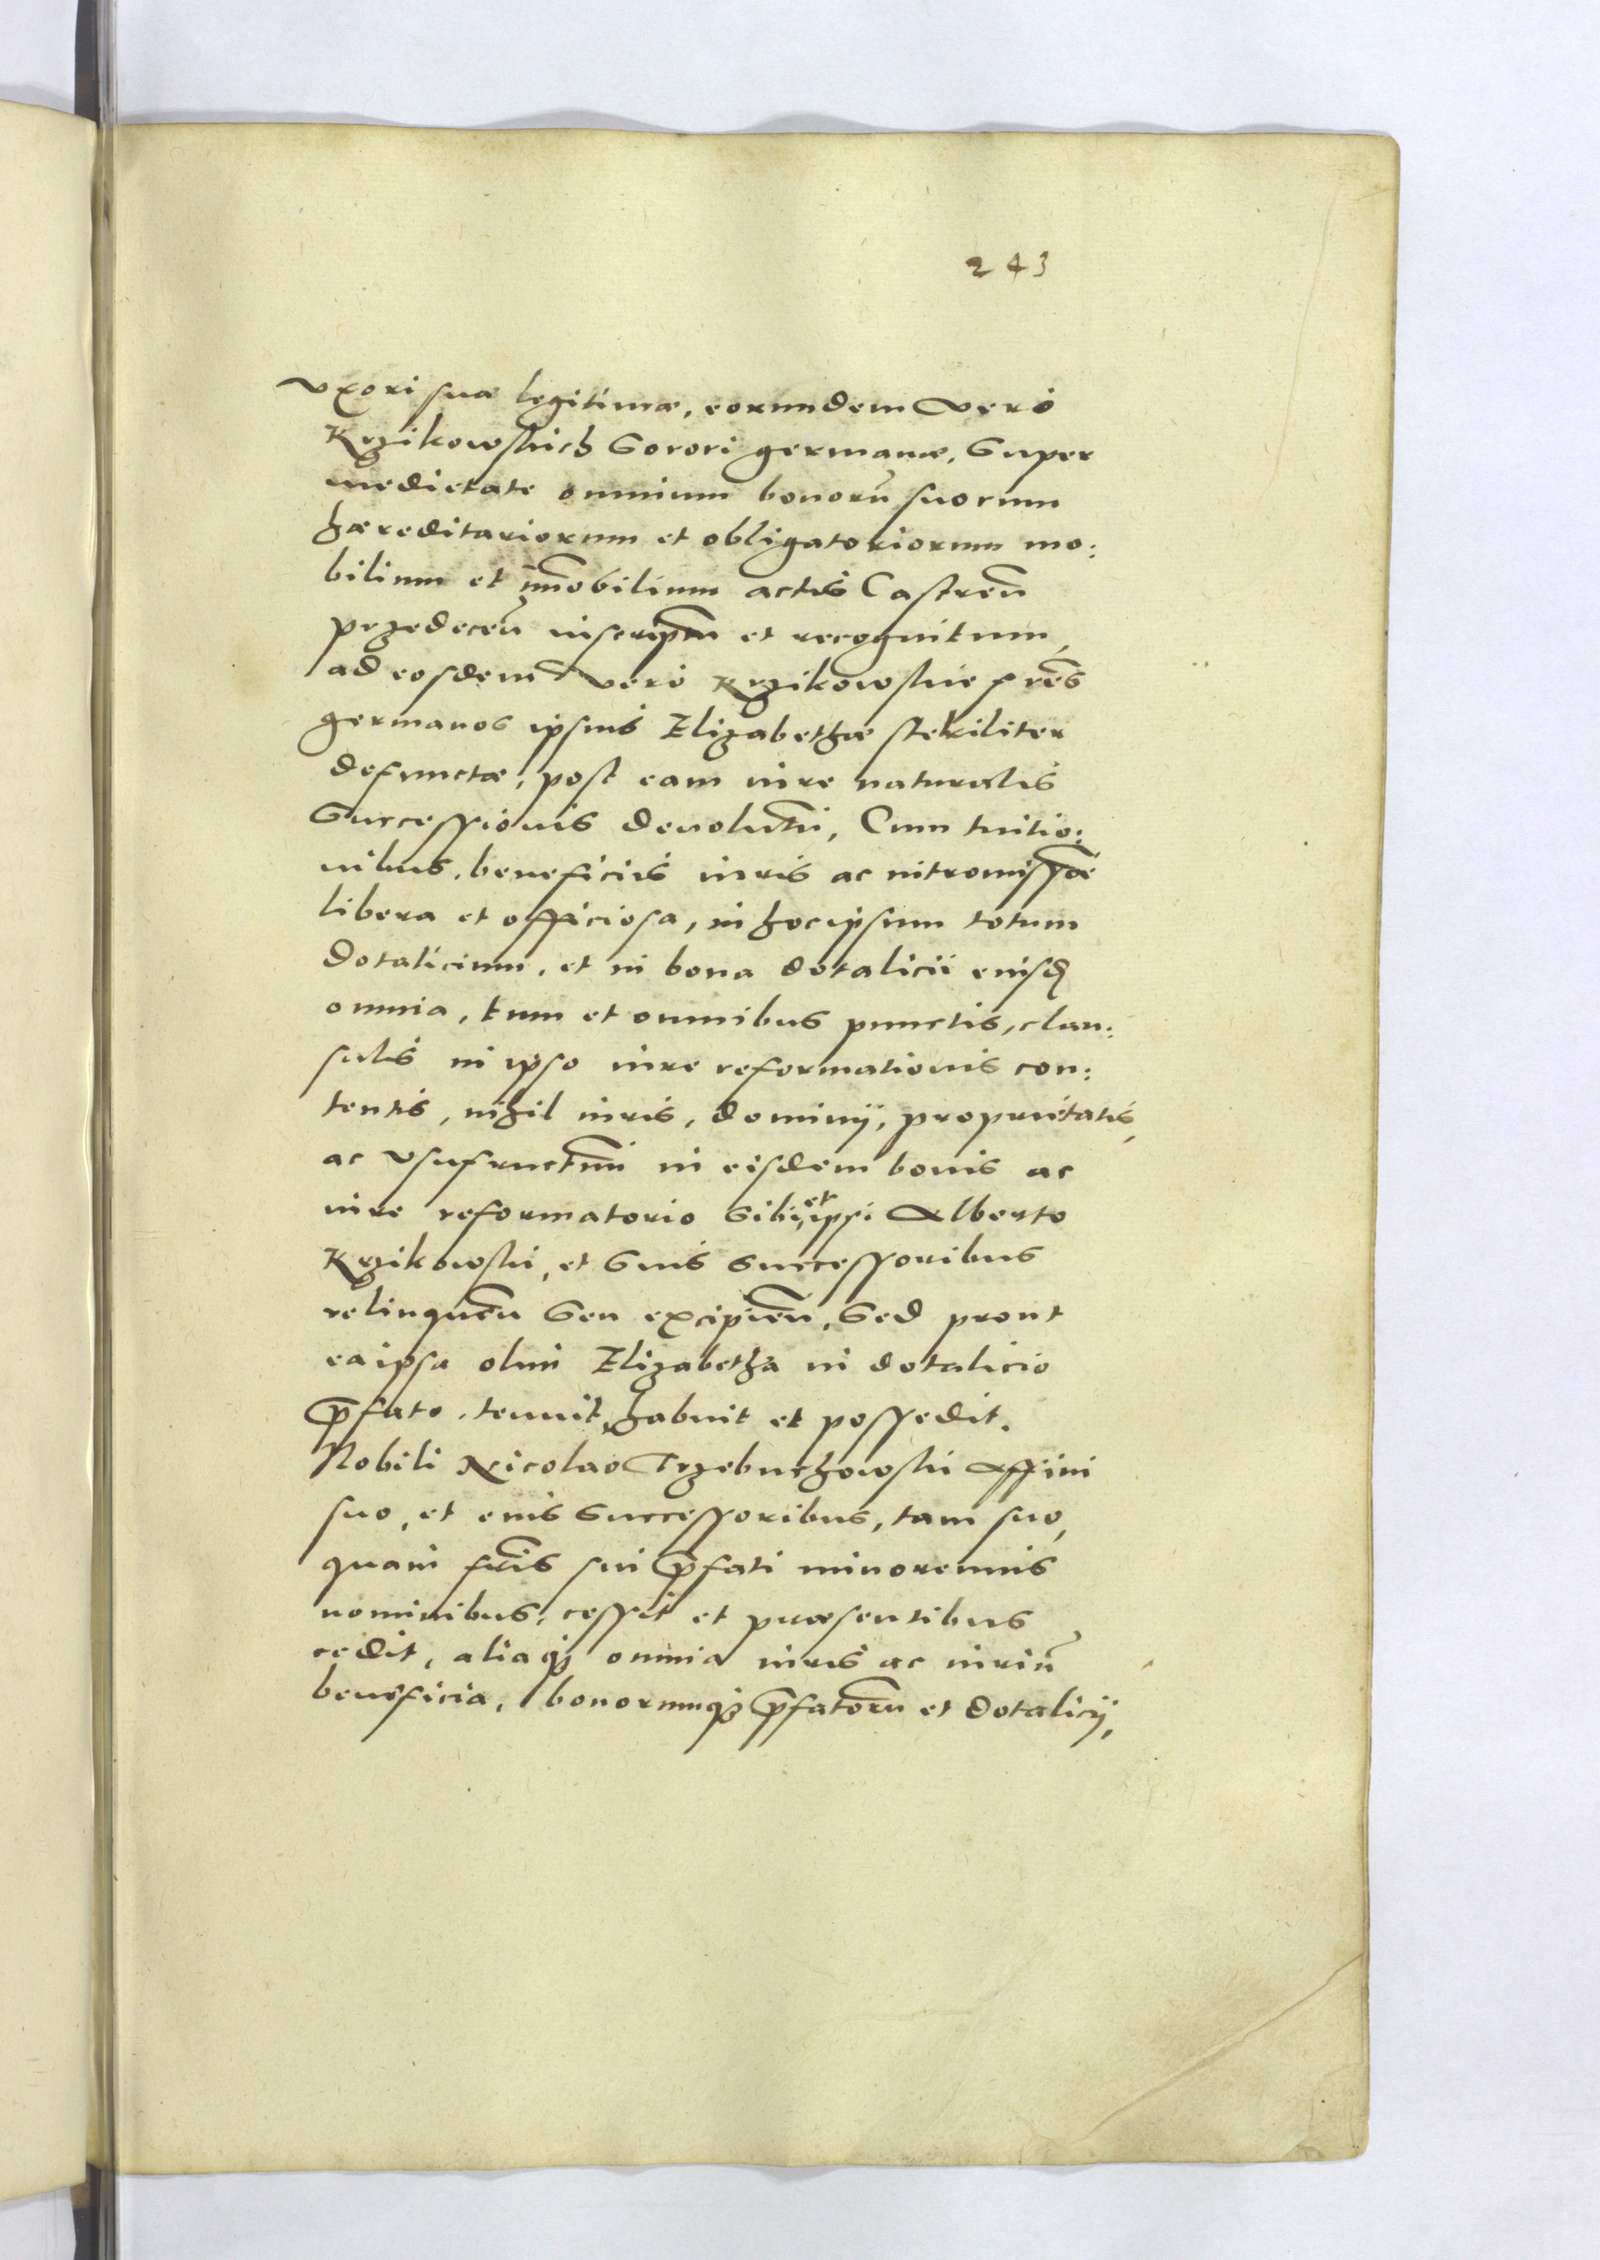 243
Vxori suæ legitimæ, eorumdem Vero
Krzikowskich Sorori germanæ, Super
medietate omnium bonorũ suorum
hæreditariorum et obligatoriorum mo:
bilium et im̃obilium actis Castreñ
przedeceñ inscriptũ et recognitum,
ad eosdem Vero Krzikowskie fr̃es
germanos ipsius Elizabethæ steriliter
defunctæ, post eam iure naturalis
Successionis deuolutũ, Cum tuitio:
nibus, beneficiis iuris ac intromissiõe
libera et officiosa, in hoc ipsum totum
Dotalicium, et in bona dotalicii eiusd
omnia, tum et omnibus punctis, clau:
sulis in ipso iure reformationis con:
tentis, nihil iuris, dominij, proprietatis,
ac Vsufructũm in eisdem bonis ac
iure reformatorio Sibi, et ipsi Alberto
Krzikowski, et Suis Successoribus
relinqueñ Seu excipieñ, Sed prout
ea ipsa olim Elizabetha in dotalicio
p̃fato tenuit, habuit et possedit.
Nobili Nicolao Trzebuchowski Affini
suo, et eius Successoribus, tam suo,
quam fr̃is sui p̃fati minorennis
nominibus, cessit et præsentibus
cedit, aliaq3 omnia iuris ac iuriũ
beneficia, bonorumq3 p̃fatorũ et dotalicij,